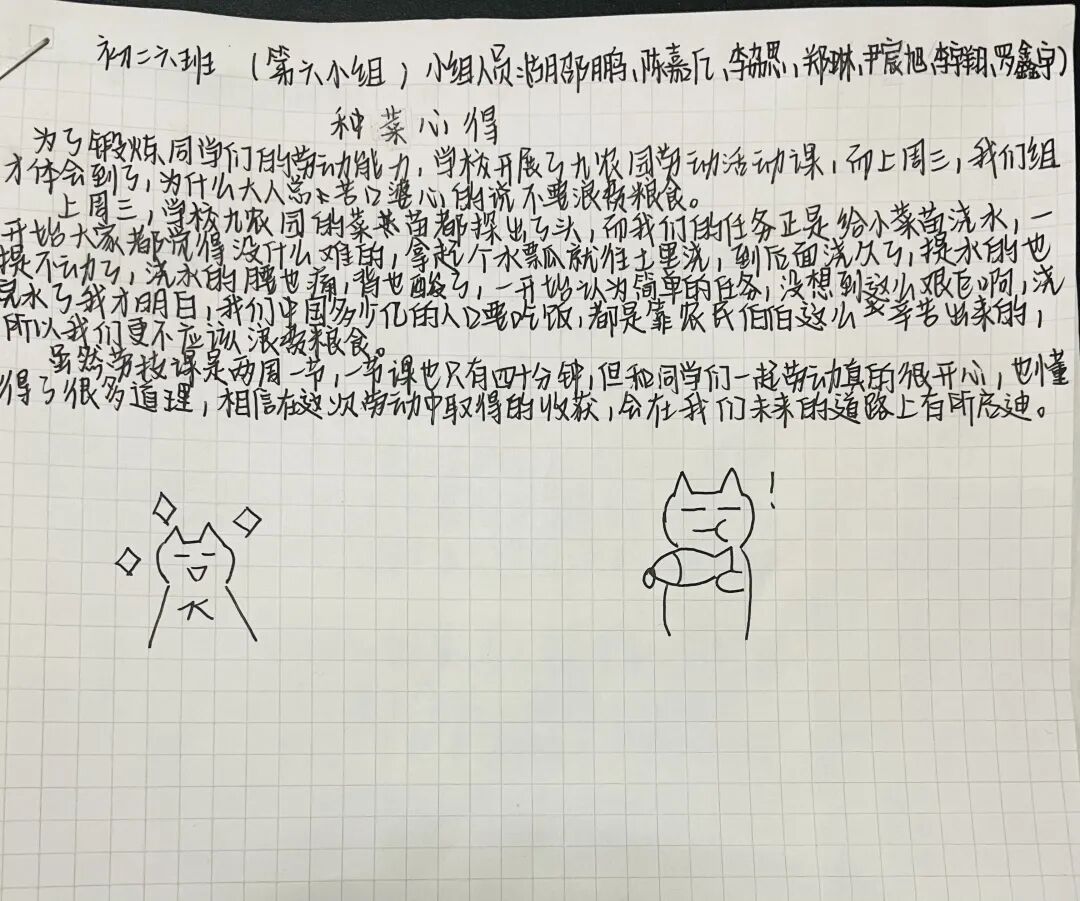 初二六班 (第六小组) 小组人员:胡邵鹏、陈嘉、李勰思、郑琳、尹宸旭、李宇翔、罗鑫宇)
种菜心得
为了锻炼同学们的劳动能力，学校开展了九农园劳动活动课，而上周三，我们组
才体会到了，为什么大人总是苦口婆心的说不要浪费粮食。
上周三，学校九农园的菜苗都探出了头，而我们的任务正是给小菜苗浇水，一
开始大家都觉得没什么难的，拿起个水票瓜就往土里浇，到后面浇久了，提水的也
提不动了，浇水的腰也痛，背也酸了，一开始认为简单的任务，没想到这么艰巨啊，浇
完水了我才明白，我们中国多少亿的人口要吃饭，都是靠农民伯伯这么辛苦出来的，
所以我们更不应该浪费粮食。
虽然劳技课是两周一节，一节课也只有四十分钟，但和同学们一起劳动真的很开心，也懂
得了很多道理，相信在这次劳动中取得的收获，会在我们未来的道路上有所启迪。
!